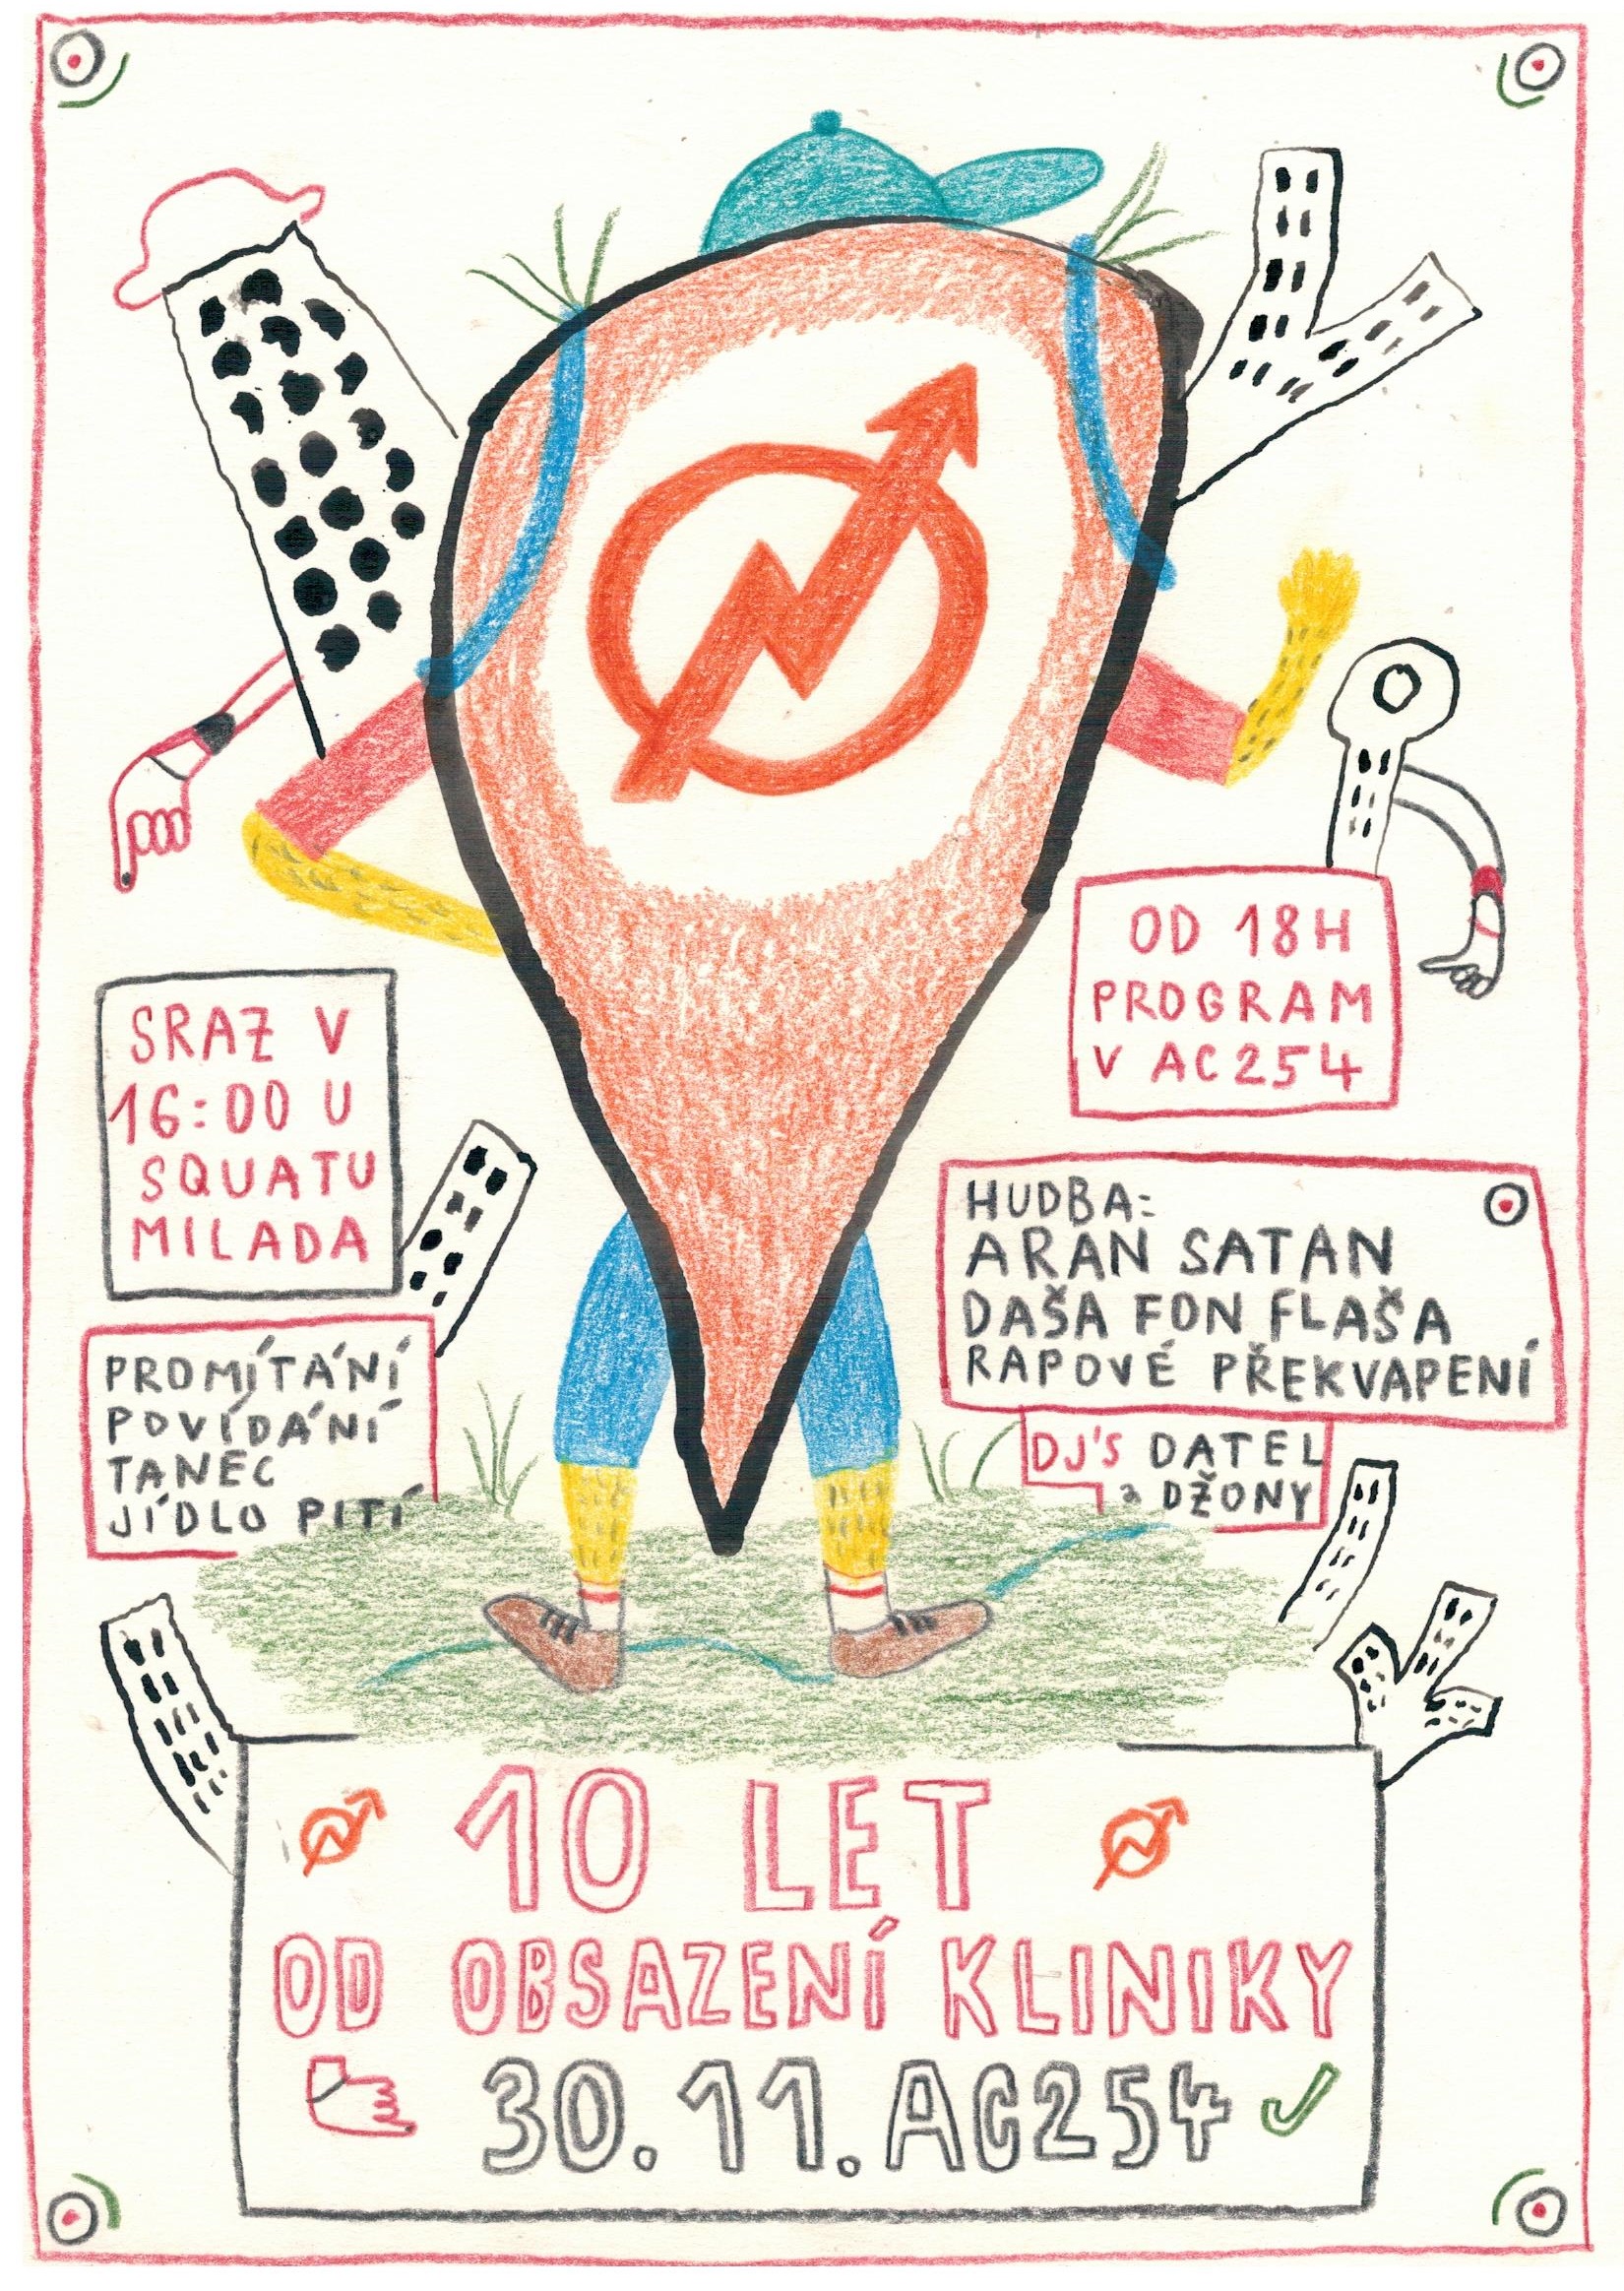 SRAZ V
16:00 U
SQUATU
MILADA
OD 18H
PROGRAM
V AC254
PROMÍTÁNÍ
POVÍDÁNÍ
TANEC
JÍDLO PITÍ
HUDBA:
ARAN SATAN
DAŠA FON FLAŠA
RAPOVÉ PŘEKVAPENÍ
DJ'S DATEL
a DŽONY
10 LET
OD OBSAZENÍ KLINIKY
30.11. AC254